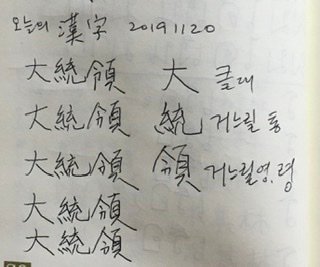 오늘의 漢字 20191120
大統領 大 클대
大統領 統 거느릴 통
大統領 領 거느릴영.령
大統領
大統領